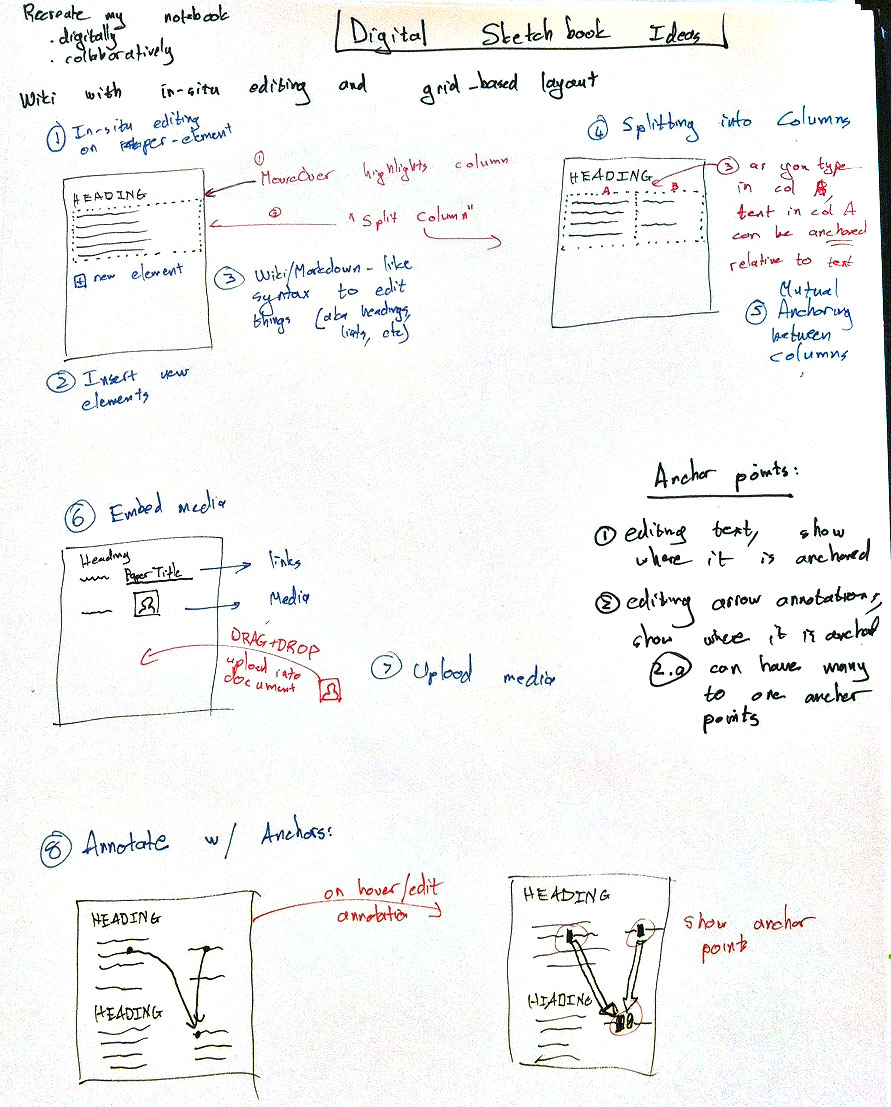 Recreate my notebook
. digitally
. collaboratively
Digital Sketchbook Ideas
Wiki with in-situ editing and grid-based layout
① In-situ editing
on per-element
HEADING
+ new element
② Insert new
elements
①
MouseOver highlights column
②
"Split Column"
③ Wiki/Markdown-like
syntax to edit
things (aka headings,
lists, etc)
④ Splitting into Columns
HEADING
A B
③ as you type
in col
text in col A
can be anchored
relative to text
Mutual
⑤ Anchoring
between
columns
⑥ Embed media
Heading
Paper Title
links
Media
DRAG+DROP
upload into
document
⑦ Upload media
Anchor points:
① editing text, show
where it is anchored
② editing arrow annotations,
show where it is anchod
2.a can have many
to one anchor
points
⑧ Annotate w/ Anchors:
HEADING
HEADING
on hover/edit
annotation
HEADING
HEADING
show anchor
points